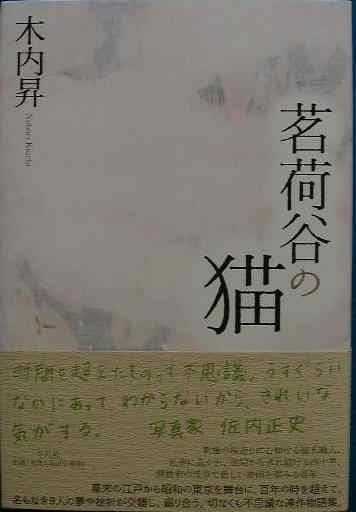 木内昇
Nobori Kiuchi
茗荷谷の
猫
時間を超えたものって不思議。うすぐらい
なかにあって、わからないから、きれいな
気がする。 写真家 佐内正史
幕末の江戸から昭和の東京を舞台に、百年の時を超えて、
名もなき9人の夢や挫折が交錯し、廻り合う。切なくも不思議な連作物語集